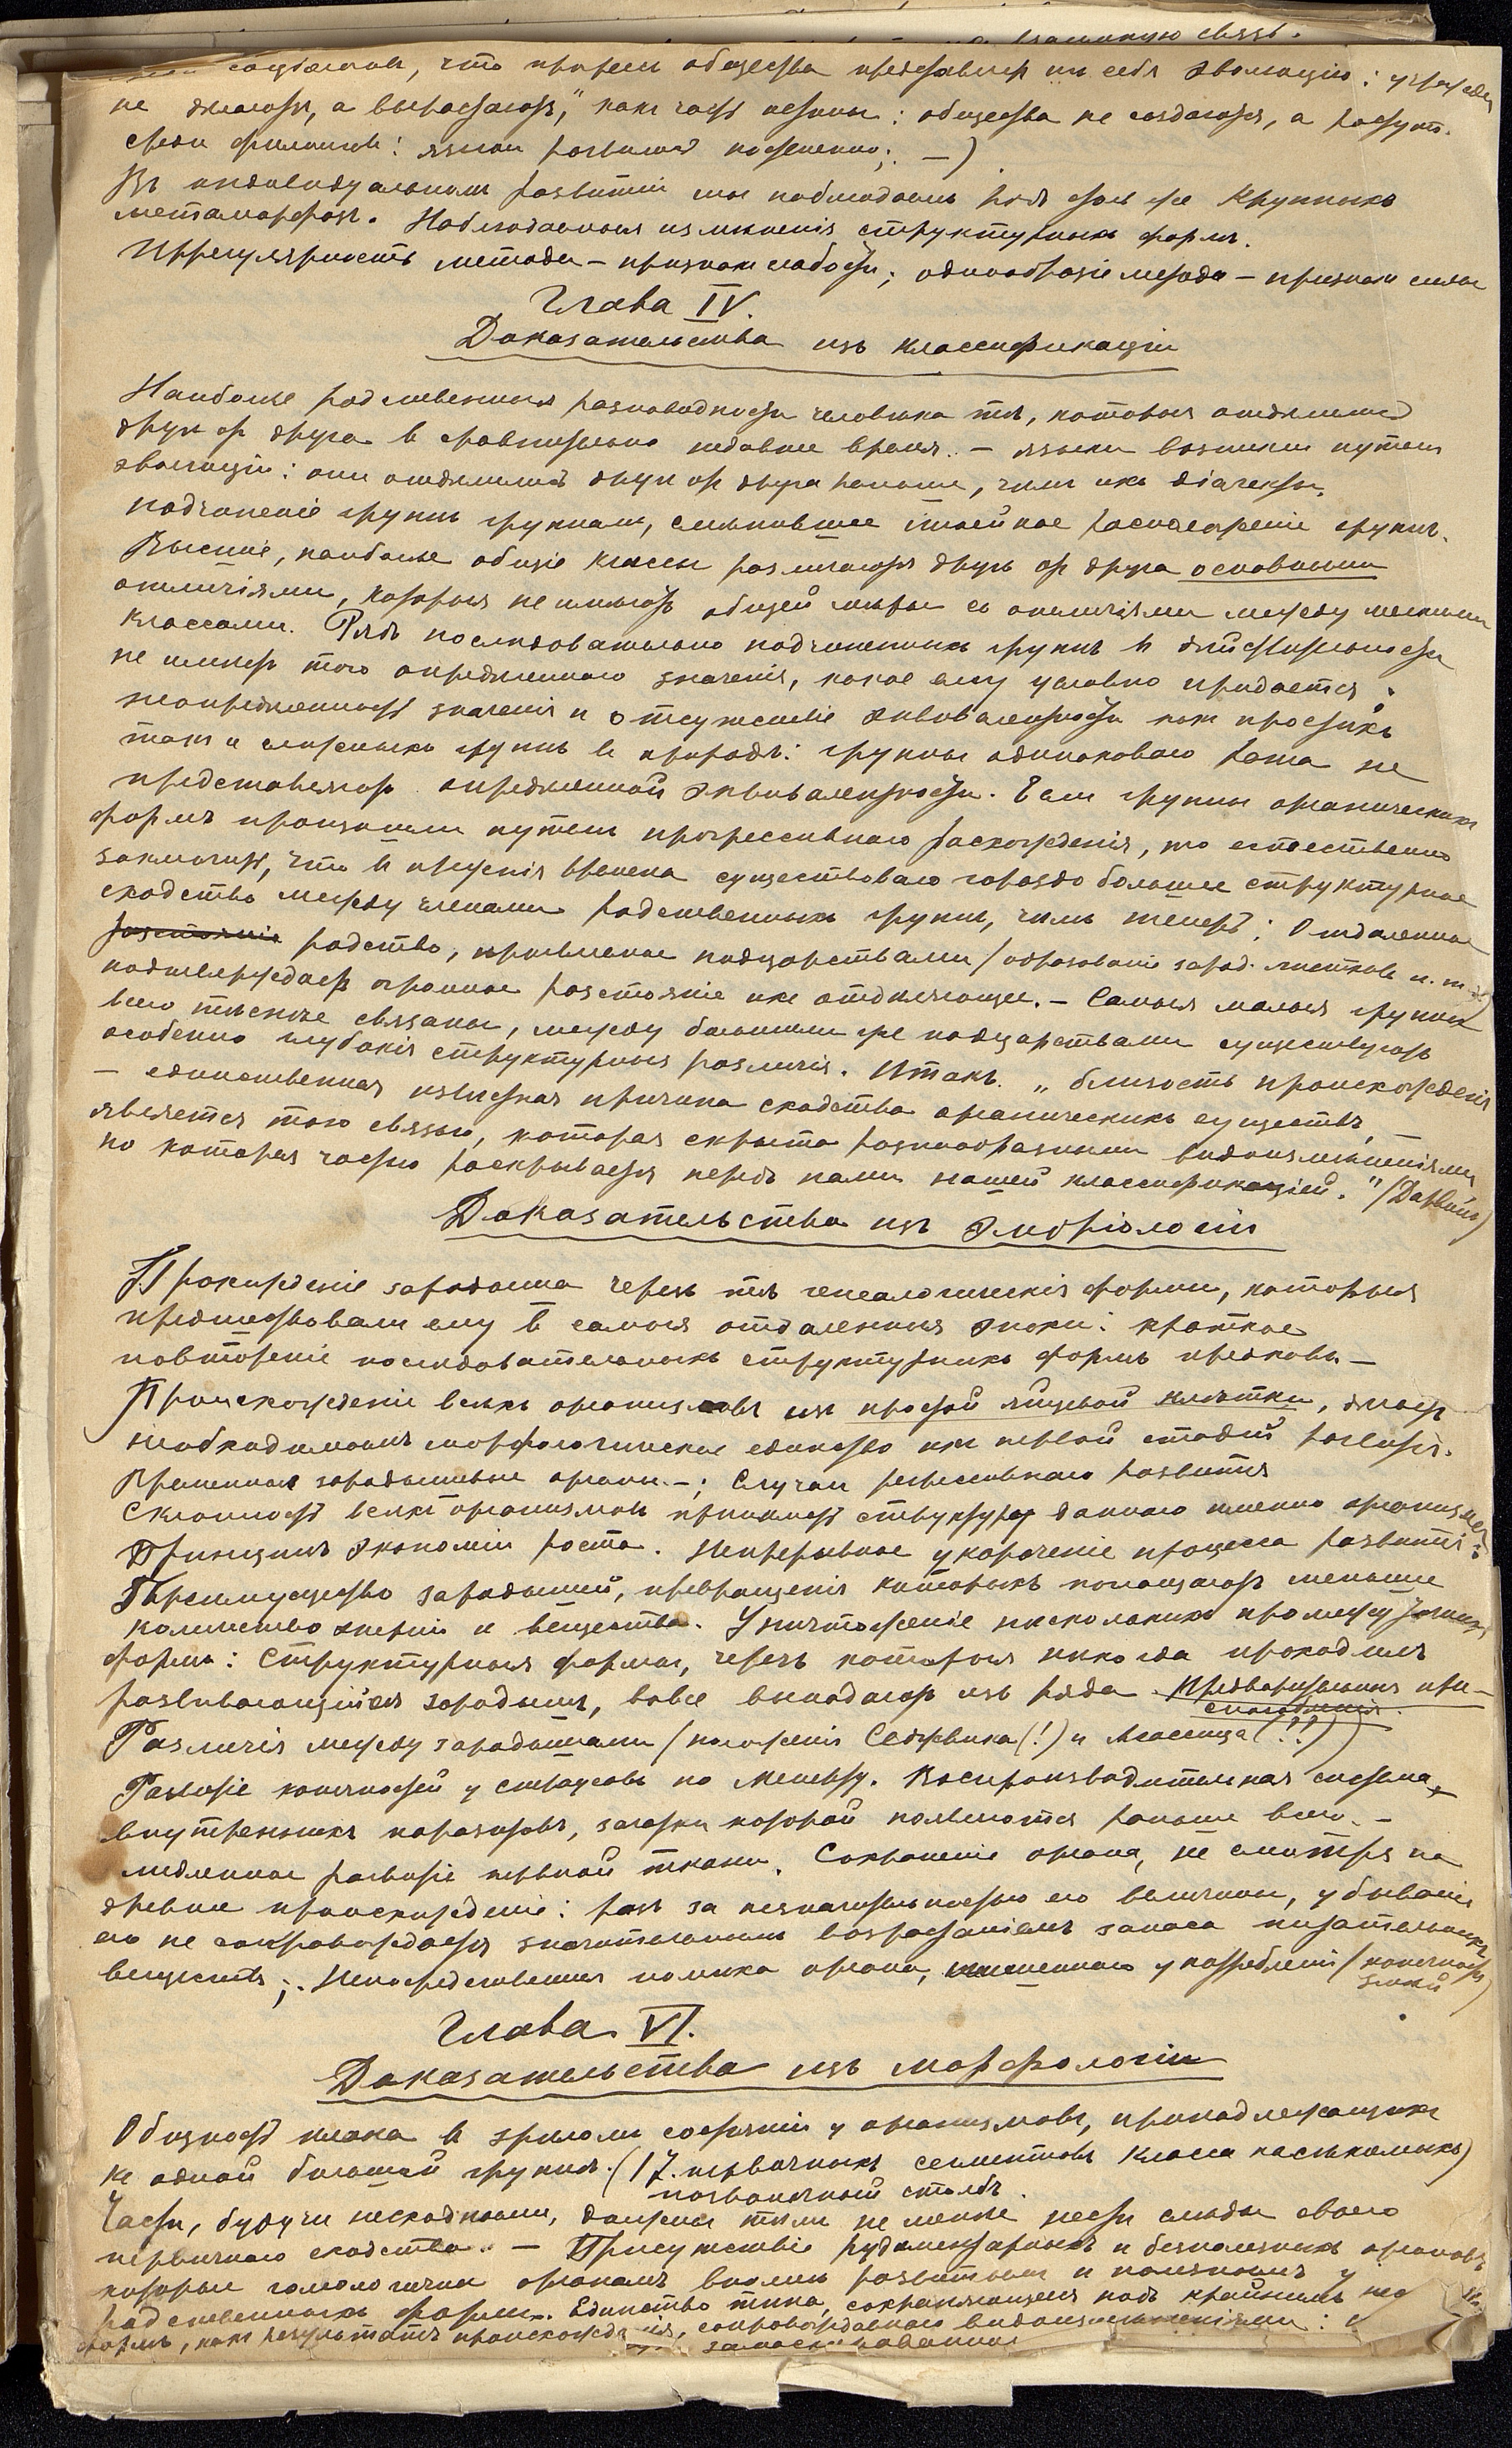 взаимную связь.
что прогресс общества представляет из себя эволюцію: учрежден
не делаются, а выростаютъ," какъ часть истины: общества не создаются, а растутъ.
среди филологовъ: языки развились постепенно; —)
Въ индивидуальномъ развитіи мы наблюдаемъ рядъ столь же крупныхъ
метаморфозъ. Наблюдаемыя измѣненія структурныхъ формъ.
Иррегулярность метода – признакъ слабости; однообразіе метода – признакъ силы
Глава IV.
Доказательства изъ классификаціи
Наиболѣе родственныя разновидности человѣка тѣ, которыя отдѣлились
другъ от друга в сравнительно недавнее время. – языки возникли путемъ
эволюціи: они отдѣлились другъ от друга раньше, чѣмъ ихъ діалекты.
подчиненіе группъ группамъ, смѣнившее линейное расположеніе группъ.
Высшіе, наиболѣе общіе классы различаются другъ от друга основными
отличіями, которыя не имѣютъ общей мѣры съ отличіями между мелкими
классами. Рядъ послѣдовательно подчиненныхъ группъ в дѣйствительности
не имѣетъ того опредѣленнаго значенія, какое ему условно придается:
неопредѣленность значенія и отсутствіе эквивалентности какъ простыхъ
такъ и сложныхъ группъ въ природѣ: группы одинаковаго ранга не
представляютъ опредѣленной эквивалентности. Если группы органическихъ
формъ произошли путемъ прогрессивнаго расхожденія, то естественно
заключить, что в прежнія времена существовало гораздо большее структурное
сходство между членами родственныхъ группъ, чѣмъ теперь; Отдаленное
разстояніе родство, проявленное подцарствами (образованіе зарод. листковъ и. т. д)
подтверждаетъ огромное разстояніе ихъ отдѣляющее. – Самыя малыя группы
всего тѣснѣе связаны, между большими же подцарствами существуютъ
особенно глубокія структурныя различія. Итакъ. „близость происхожденія
– единственная извѣстная причина сходства органическихъ существъ, –
является тою связью, которая скрыта разнообразными видоизмѣненіями
но которая часто раскрывается передъ нами нашей классификаціей." (Дарвинъ)
Доказательства изъ эмбріологіи
Прохожденіе зародыша черезъ тѣ генеалогическія формы, которыя
предшествовали ему в самыя отдаленныя эпохи: краткое
повтореніе послѣдовательныхъ структурныхъ формъ предковъ –
Происхожденіе всѣхъ организмовъ изъ простой яйцевой клѣтки, дѣлаетъ
необходимымъ морфологическое единство ихъ первой стадіи развитія.
Временные зародышевые органы. –; Случаи регрессивнаго развитія
Склонность всѣхъ организмовъ принимать структуру даннаго именно организма.
Принципъ экономіи роста. Непрерывное укороченіе процесса развитія:
Преимущество зародышей, превращенія которыхъ поглощаютъ меньшее
количество энергіи и вещества. Уничтоженіе нѣсколькихъ промежуточныхъ
формъ: Структурныя формы, черезъ которыя никогда проходилъ
развивающійся зародышъ, вовсе выпадаютъ изъ ряда. Предварительныя при-
способленія.
Различія между зародышами (положенія Седжвика (!) и Агассица (??))
Развитіе конечностей у страусовъ по Менерту. Воспроизводительная система
внутреннихъ паразитовъ, зачатки которой появляются раньше всего. –
медленное развитіе нервной ткани. Сохраненіе органа, не смотря на
древнее происхожденіе: разъ за незначительностью его величины, убываніе
его не сопровождается значительнымъ возростаніемъ запаса питательныхъ
веществъ; Непосредственная помѣха органа, лишеннаго употребленія (конечности
змѣй)
Глава VI.
Доказательства изъ морфологіи
Общность плана в зрѣломъ состояніи у организмовъ, принадлежащихъ
къ одной большой группѣ. (17. первичныхъ сегментовъ класса насѣкомыхъ)
позвоночный столбъ.
Части, будучи несходными, должны тѣмъ не менѣе нести слѣды своего
первичнаго сходства. – Присутствіе рудиментарныхъ и безполезныхъ органовъ
которые гомологичны органамъ вполнѣ развитымъ и полезнымъ у
родственныхъ формъ. Единство типа, сохраняющееся подъ крайнимъ не
формъ, какъ результатъ происхожденія, сопровождаемаго видоизмѣненіями:
замаскированное